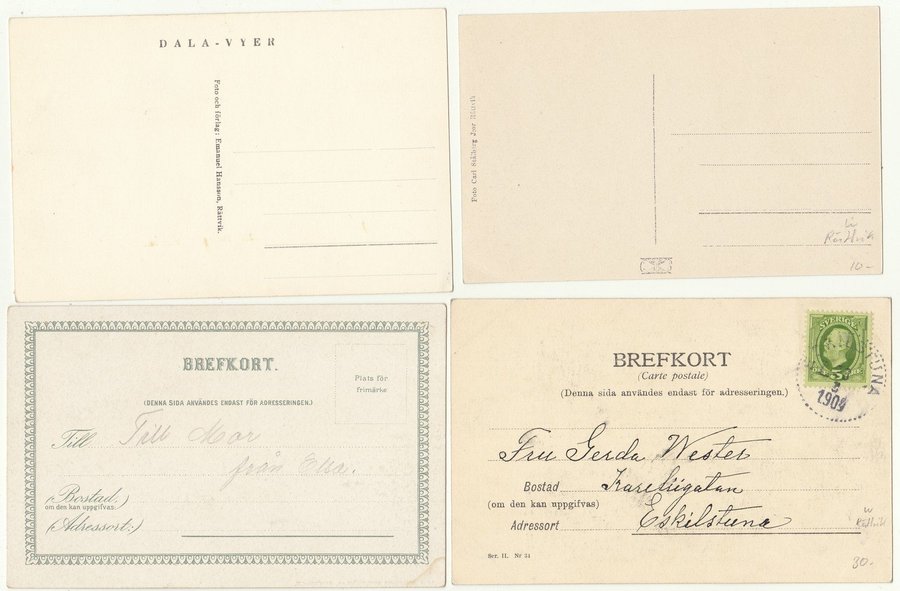 DALA-VYER
Foto och förlag: Emanuel Hansson, Rättvik.
Foto Carl Stålberg
Rättvik
10-
BREFKORT.
Plats för
frimärke
(DENNA SIDA ANVÄNDES ENDAST FÖR ADRESSERINGEN.)
Till Till Mor
från Elsa.
(Bostad,)
om den kan uppgifvas:
(Adressort:)
BREFKORT
(Carte postale)
(Denna sida användes endast för adresseringen.)
SVERIGE
1909
Fru Gerda Wester
Bostad
(om den kan uppgifvas)
Adressort Eskilstuna
Ser. II. Nr 34
Rättvik
30-